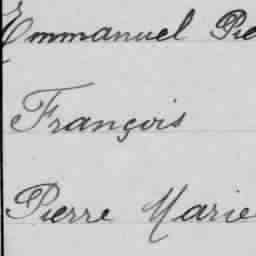 Emmanuel Pie
François
Pierre Marie